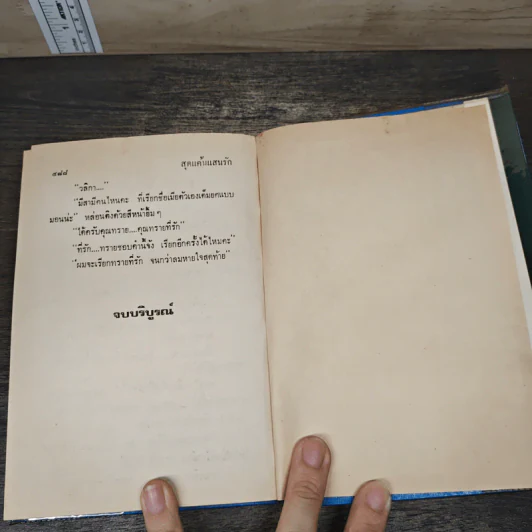 ๔๘๘
สุดแค้นแสนรัก
"วลิกา...."
"มีสามีคนไหนคะ ที่เรียกชื่อเมียตัวเองเต็มยศแบบ
มอนน่ะ" หล่อนดึงด้วยสีหน้ายิ้มๆ
"ได้ครับคุณทราย....คุณทรายที่รัก"
"ที่รัก....ทรายชอบคำนี้จัง เรียกอีกครั้งได้ไหมคะ"
"ผมจะเรียกทรายที่รัก จนกว่าลมหายใจสุดท้าย"
จบบริบูรณ์